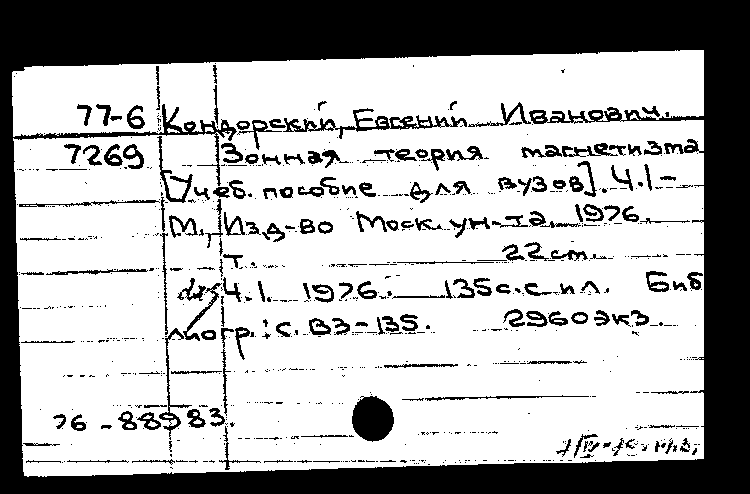 77-6 Кондорский, Евгений Иванович.
7269 Зонная теория магнетизма
[Учеб. пособие для вузов]. Ч.1-
М., Изд-во Моск. ун-та, 1976.
т. 22 см.
Ч.1. 1976. 135 с. с ил. Биб
лиогр.: с. 133-135. 2960 экз.
76-88983.